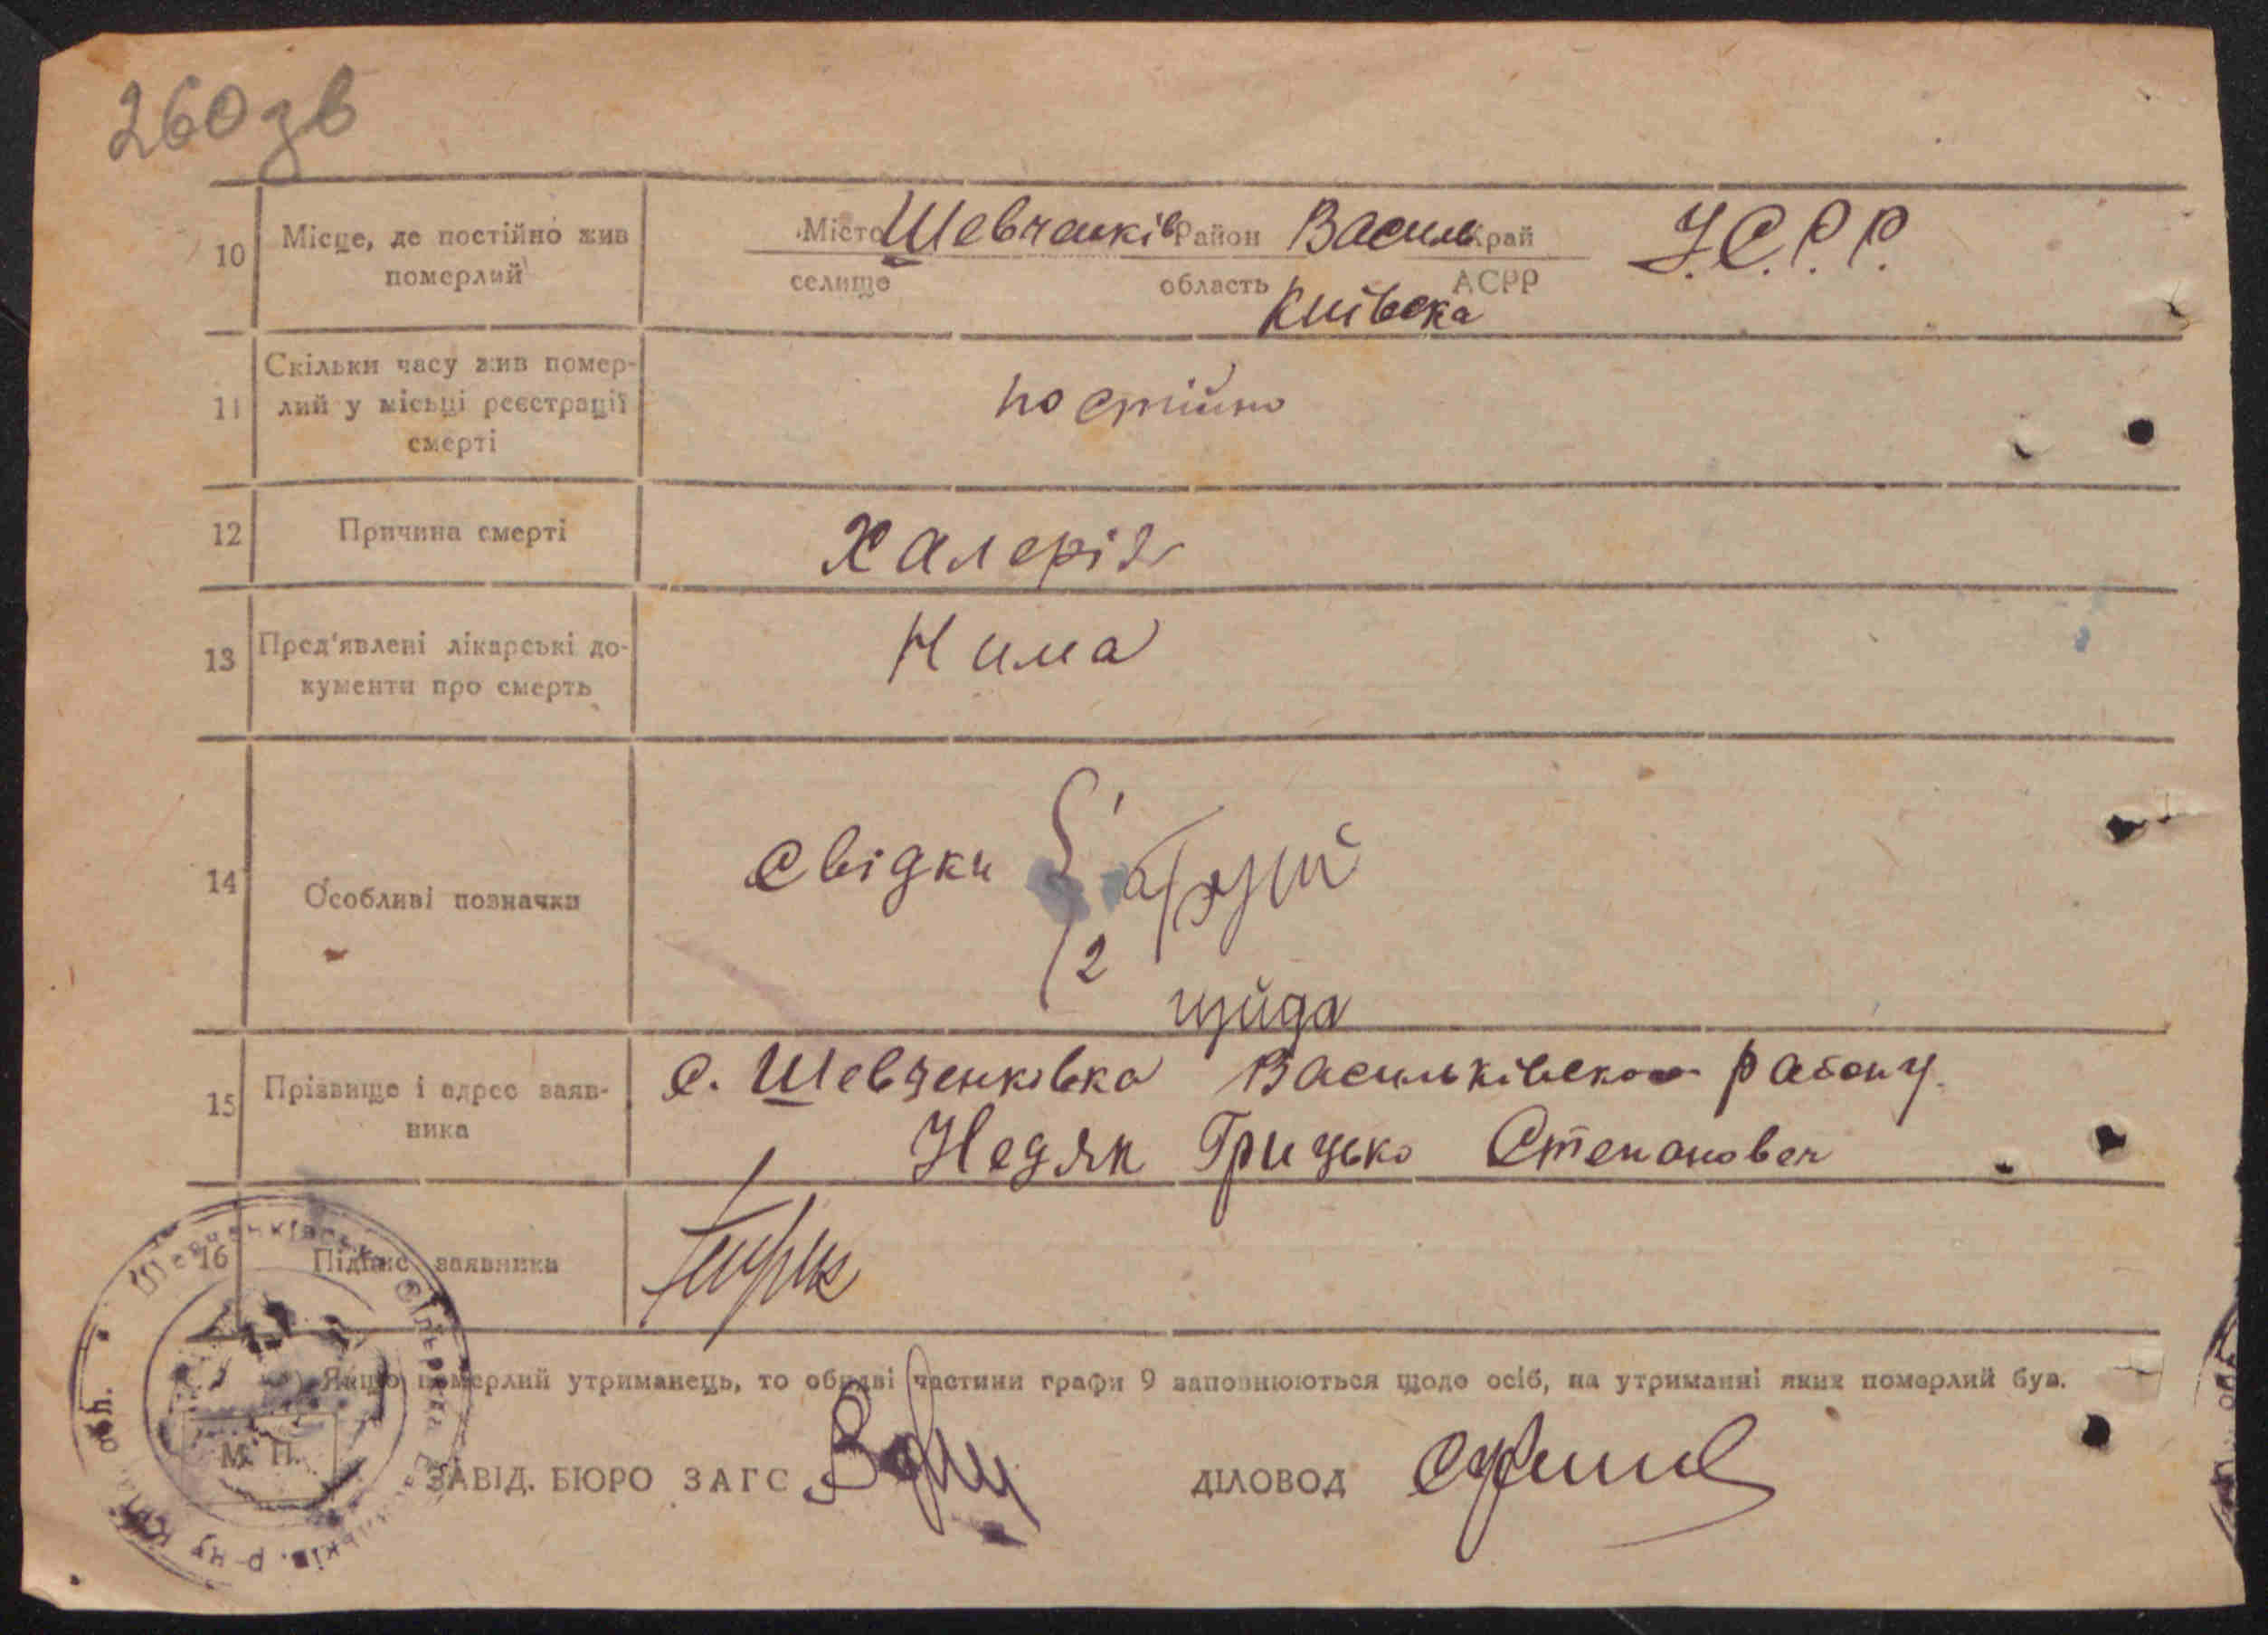 260зв
10 Місце, де постійно жив померлий
Місто Шевченків Район Василь Край У.С.Р.Р.
селище область Київска АСРР
11 Скільки часу жив помер-
лий у місьці реєстрації
смерті
постійно
12 Причина смерті Халерія
13 Пред'явлені лікарські до-
кументи про смерть
Нима
14 Особливі позначки
Свідки 1
2
15 Прізвище і адрес заяв-
ника
с. Шевченковка Васильківского району
Недяк Грицько Степанович
16 Підпис заявника
Шевченківська сільрада Васильків. р-ну Київ. обл.
Якщо померлий утриманець, то обидві частини графи 9 заповнюються щодо осіб, на утриманні яких померлий був.
М. П.
ЗАВІД. БЮРО ЗАГС
ДІЛОВОД